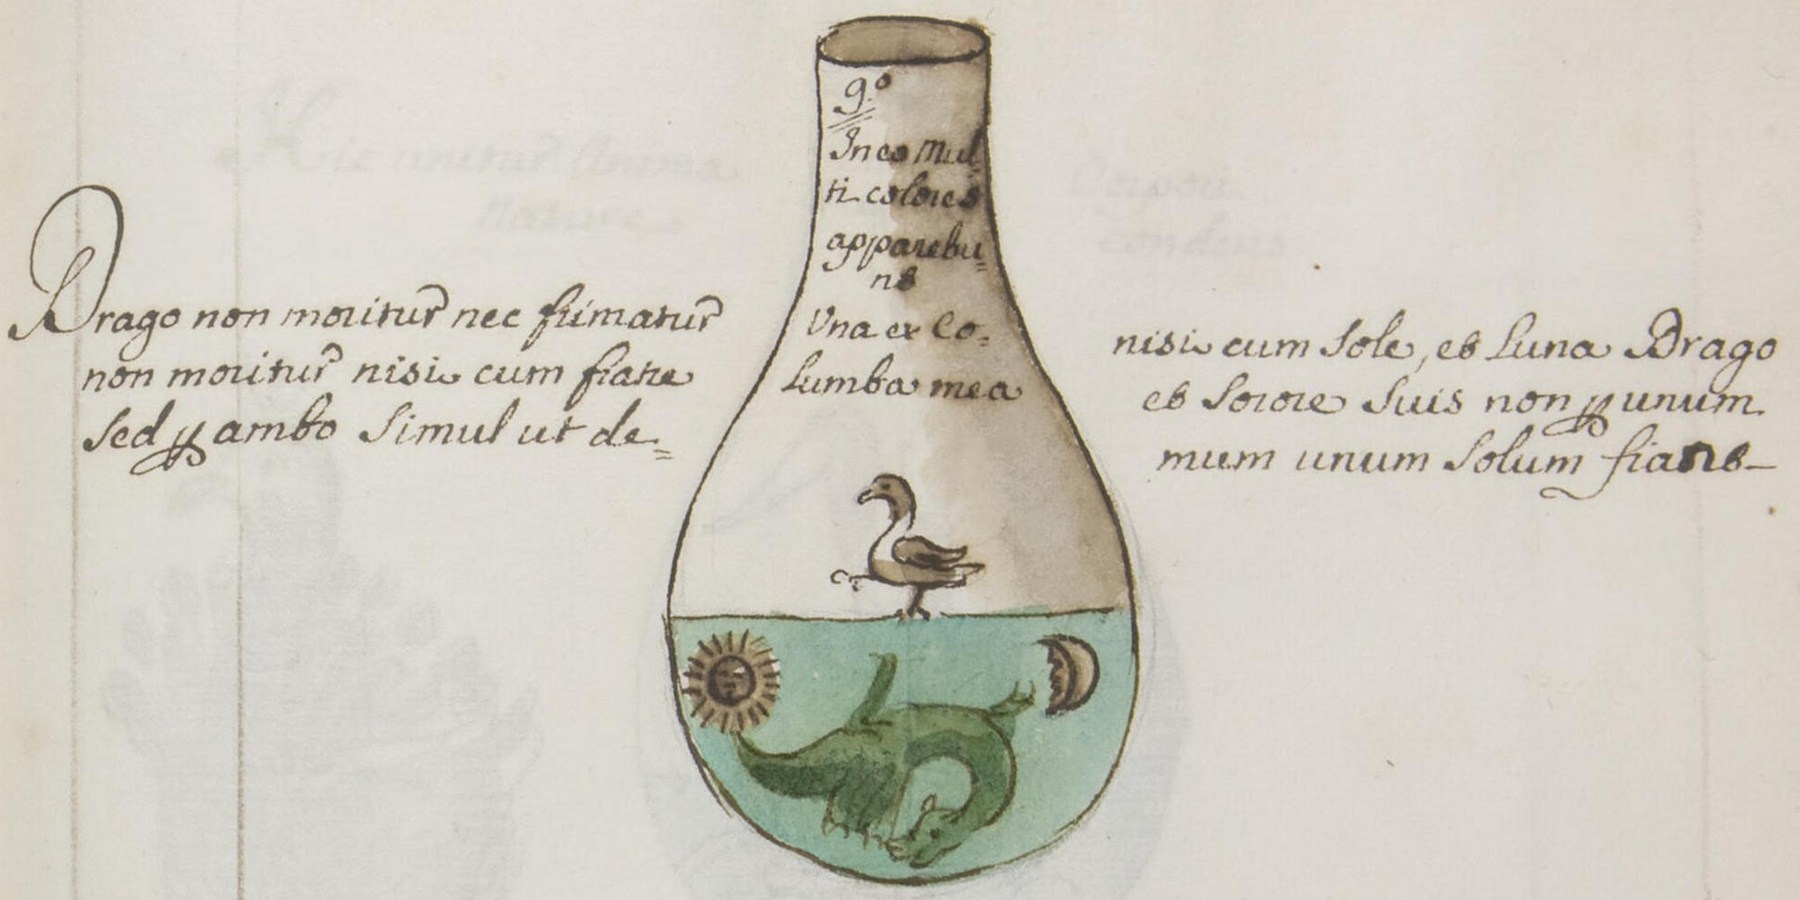 9.º
In eo mul=
ti colores
apparebu=
nt
Una ex Co=
lumba mea
Drago non moritur nec firmatur
nisi cum Sole, et Luna Drago
non moritur nisi cum fratre
et Sorore Suis non ꝑ unum
Sed ꝑ ambo Simul ut de=
mum unum Solum fiant